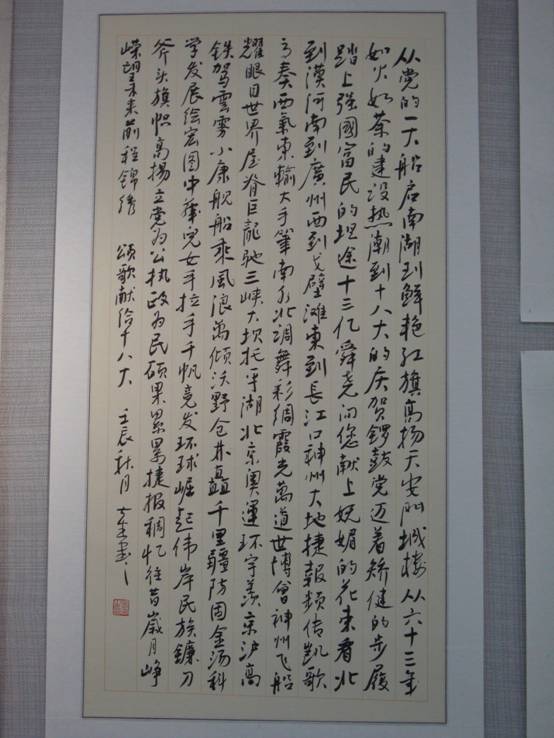 从党的一大船启南湖到鲜艳红旗高扬天安门城楼从六十三年
如火如荼的建设热潮到十八大的庆贺锣鼓党迈着矫健的步履
踏上强國富民的坦途十三亿舜尧向您献上妩媚的花束看北
到漠河南到廣州西到戈壁滩東到長江口神州大地捷報频传凯歌
高奏西氣東輸大手筆南水北调舞彩绸霞光萬道世博會神州飞船
耀眼目世界屋脊巨龍驰三峡大坝托平湖北京奥運环宇羡京沪高
铁驾雲雾小康舰船乘风浪萬倾沃野仓禀矗千里疆防固金汤科
学发展绘宏图中華兒女手拉手千帆竞发环球崛起伟岸民族鐮刀
斧头旗帜高揚立党为公执政为民硕果累累捷报稠忆往昔歲月峥
嵘望未来前程錦绣 頌歌献给十八大 壬辰秋月